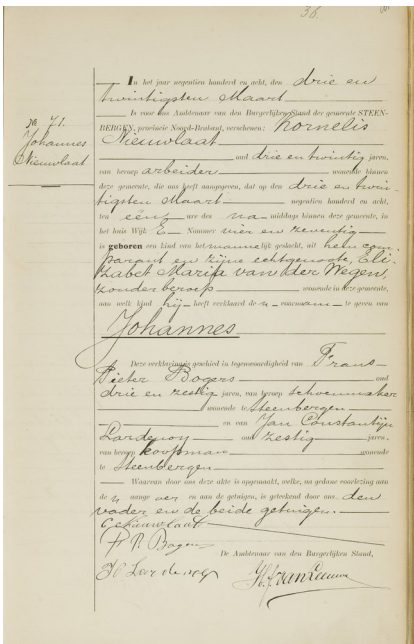 36.
In het jaar negentien honderd en acht, den drie en
twintigsten Maart
Is voor ons Ambtenaar van den Burgerlijken Stand der gemeente STEEN-
BERGEN, provincie Noord-Brabant, verschenen: Kornelis
Nieuwlaat
oud drie en twintig jaren,
van beroep arbeider wonende binnen
deze gemeente, die ons heeft aangegeven, dat op den drie en twin-
tigsten Maart negentien honderd en acht,
ten één ure des na middags binnen deze gemeente, in
het huis Wijk E Nummer vier en zeventig
is geboren een kind van het mannelijk geslacht, uit hem com-
parant en zijne echtgenoote, Eli-
zabet Maria van der Wegen,
zonder beroep wonende in deze gemeente,
aan welk kind hij heeft verklaard de n voornaam te geven van
Johannes
Deze verklaring is geschied in tegenwoordigheid van Frans
Pieter Bogers oud
drie en zestig jaren, van beroep schoenmaker
wonende te Steenbergen
en van Jan Constantijn
Lardenoy oud zestig jaren,
van beroep koopman wonende
te Steenbergen
Waarvan door ons deze akte is opgemaakt, welke, na gedane voorlezing aan
de n aangever en aan de getuigen, is geteekend door ons, den
vader en de beide getuigen.
CNieuwlaat
Bogers
De Ambtenaar van den Burgerlijken Stand,
JC Lardenoye
no. 71.
Johannes
Nieuwlaat